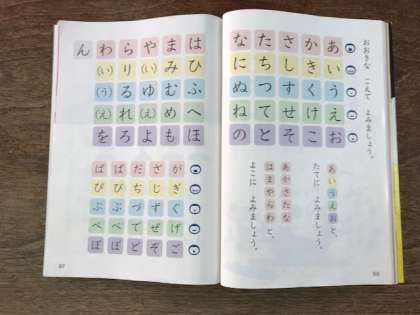 おおきな こえで よみましょう。
あいうえお
かきくけこ
さしすせそ
たちつてと
なにぬねの
あいうえお と、
たてに よみましょう。
あかさたな
はまやらわ と、
よこに よみましょう。
はひふへほ
まみむめも
や(い)ゆ(え)よ
らりるれろ
わ(い)(う)(え)を
ん
がぎぐげご
ざじずぜぞ
だぢづでど
ばびぶべぼ
ぱぴぷぺぽ